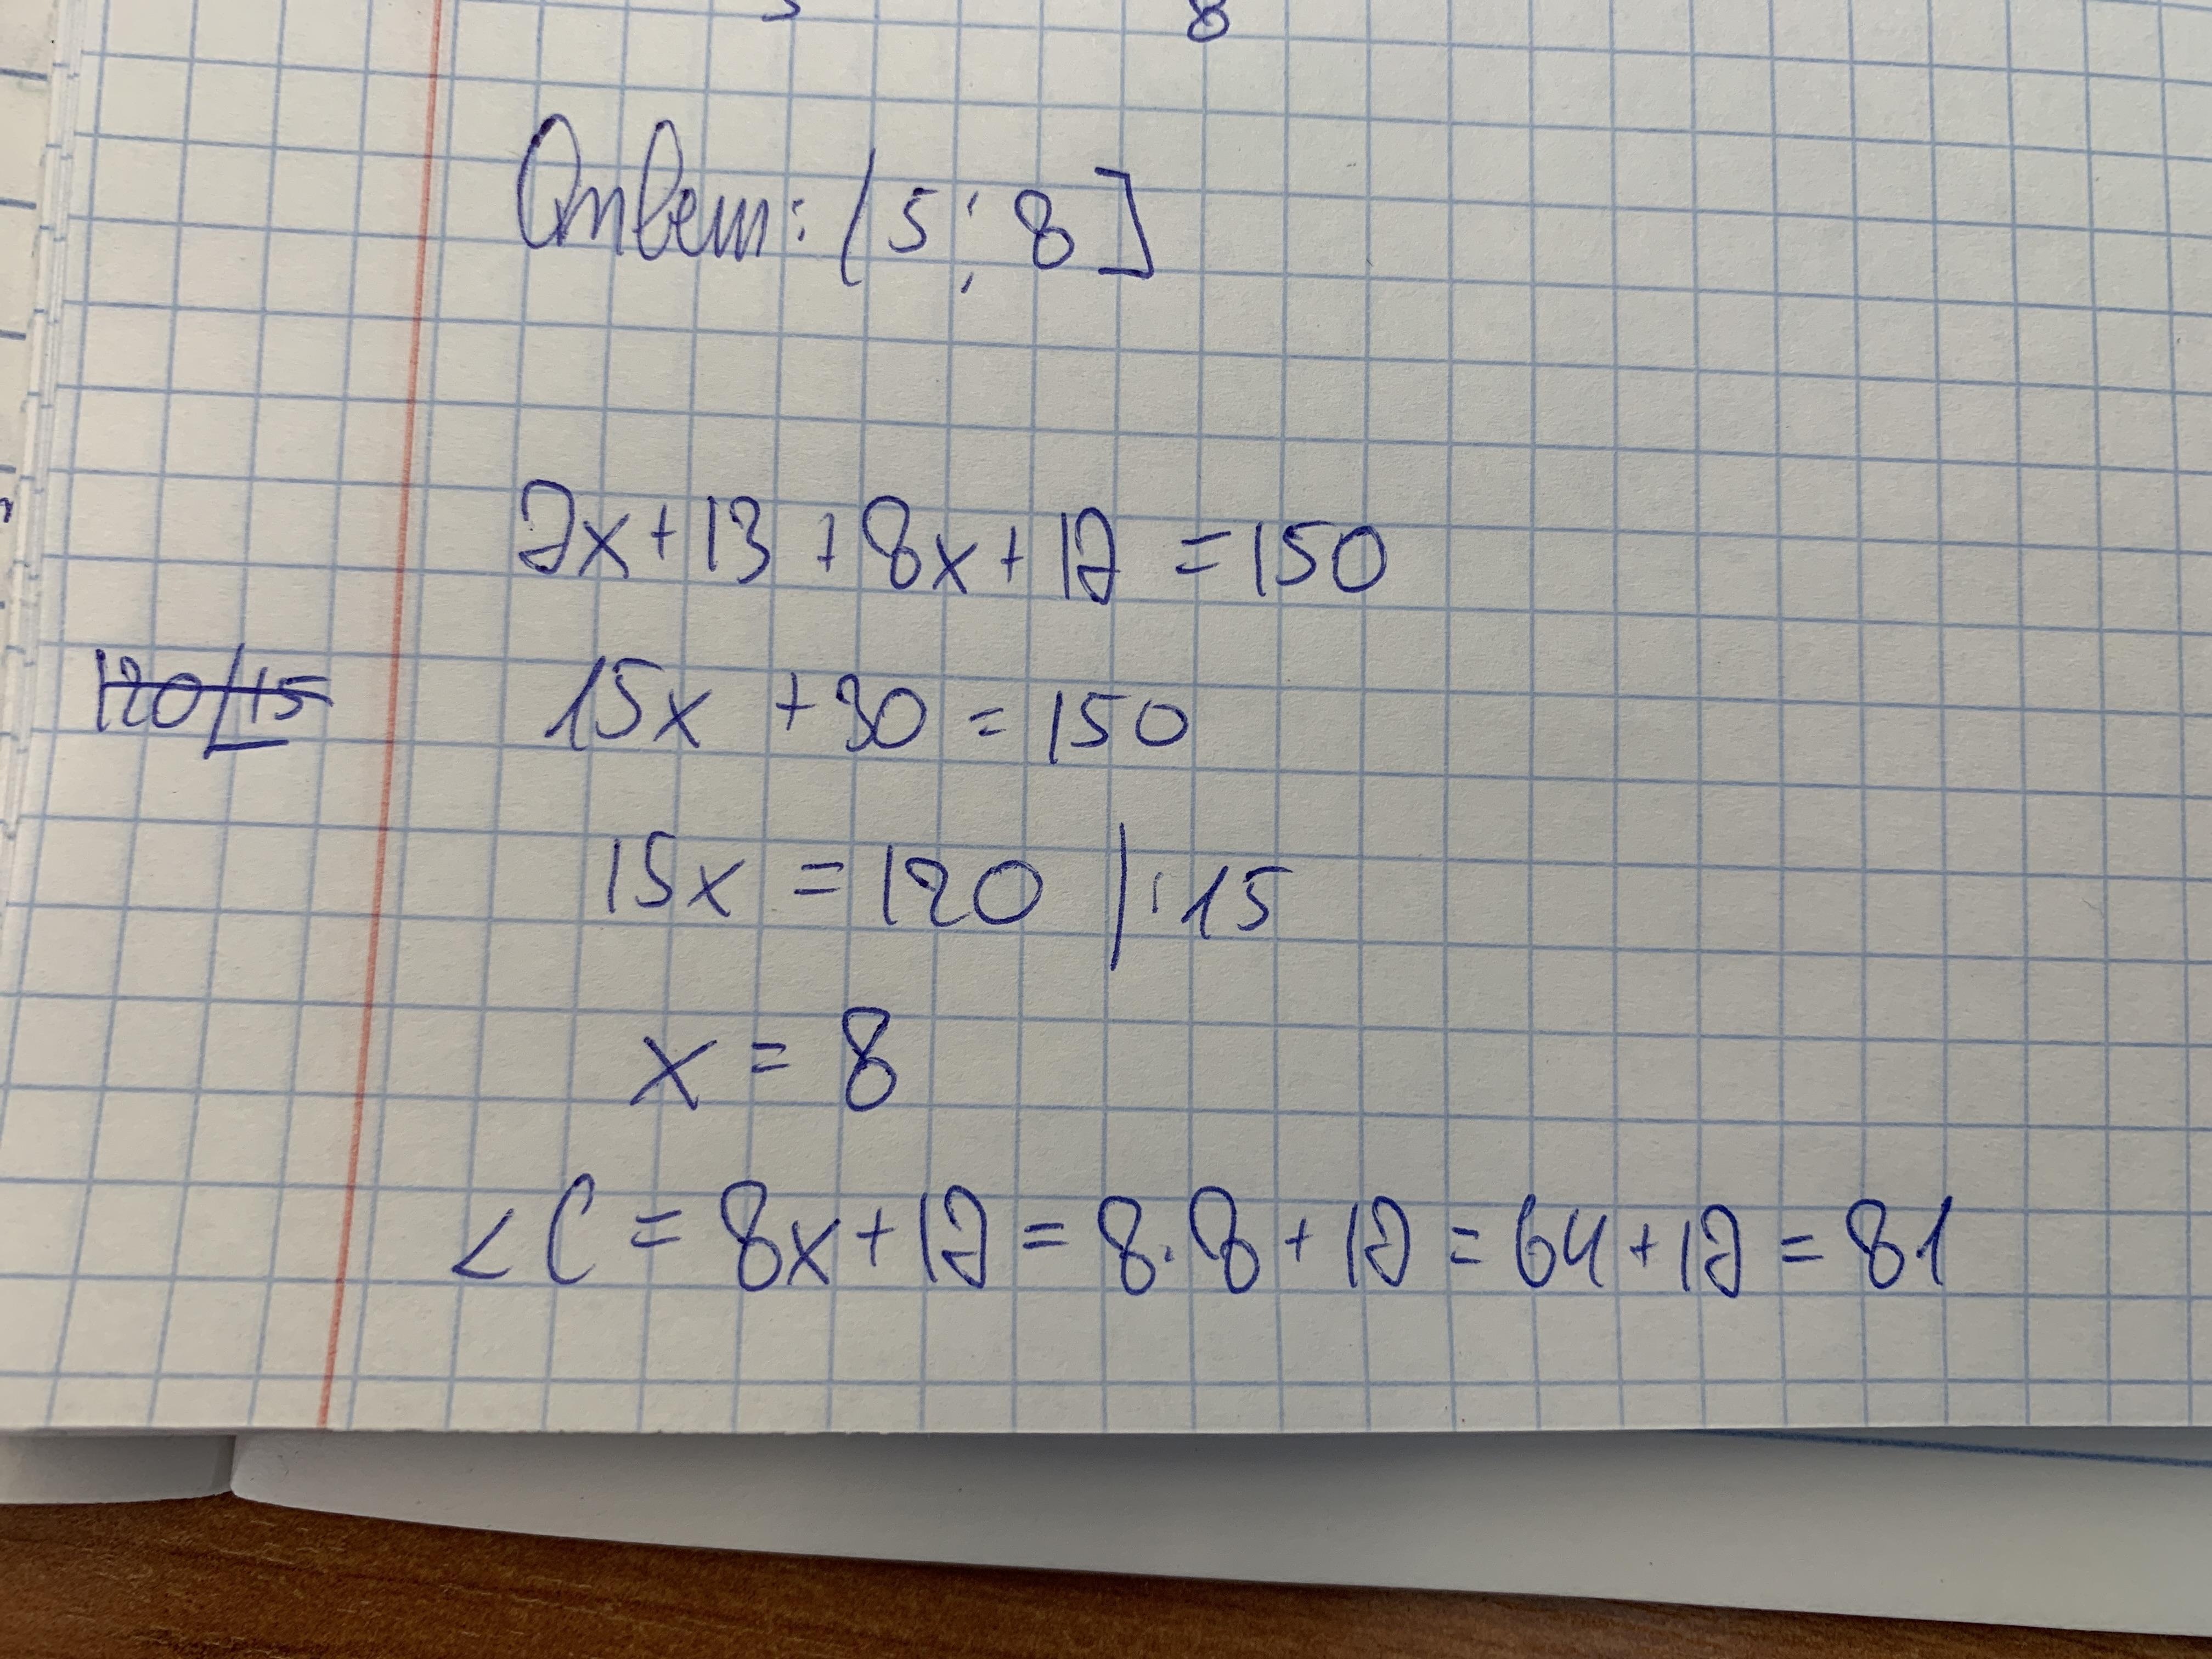 8
Ответ: (5; 8]
7x+13+8x+17=150
120/15
15x+30=150
15x=120 |:15
x=8
<C=8x+17=8·8+17=64+17=81